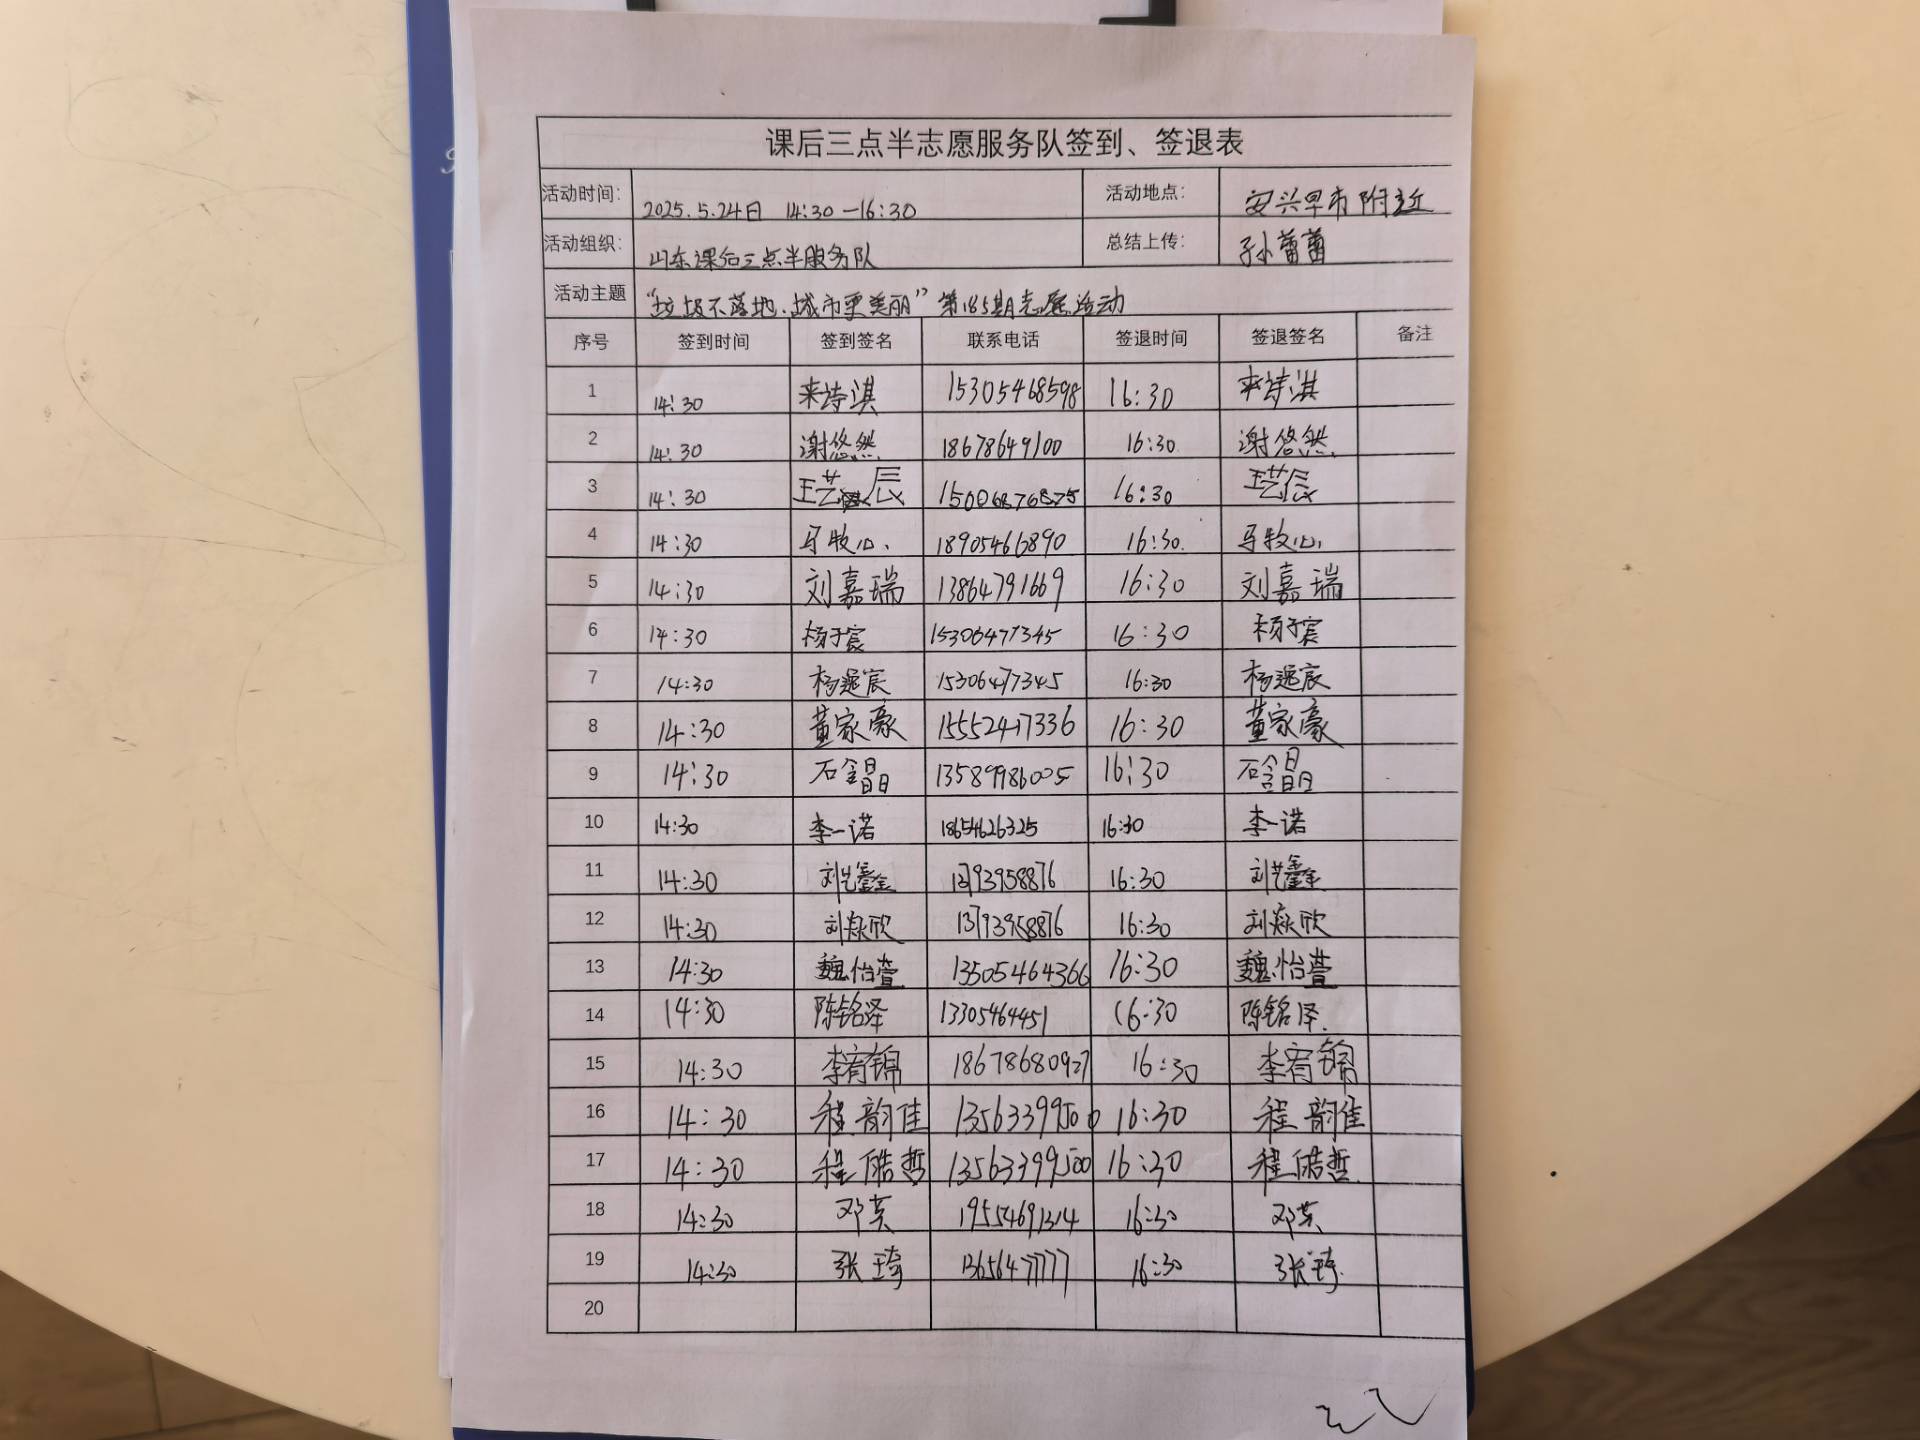 课后三点半志愿服务队签到、签退表
活动时间: 2025.5.24日 14:30—16:30 活动地点: 安兴早市附近
活动组织: 山东课后三点半服务队 总结上传: 孙蕾蕾
活动主题 “垃圾不落地.城市更美丽”第185期志愿活动
序号 签到时间 签到签名 联系电话 签退时间 签退签名 备注
1 14:30 来诗淇 15305468598 16:30 来诗淇
2 14:30 谢悠然 18678649100 16:30 谢悠然
3 14:30 王艺辰 15006876875 16:30 王艺辰
4 14:30 马牧心 18905466890 16:30 马牧心
5 14:30 刘嘉瑞 13864791669 16:30 刘嘉瑞
6 14:30 杨子宸 15306477345 16:30 杨子宸
7 14:30 杨逸宸 15306477345 16:30 杨逸宸
8 14:30 董家豪 15552417336 16:30 董家豪
9 14:30 石晶 13589986005 16:30 石晶
10 14:30 李一诺 18654626325 16:30 李一诺
11 14:30 刘艺鑫 13793958876 16:30 刘艺鑫
12 14:30 刘焱欣 13793958876 16:30 刘焱欣
13 14:30 魏怡萱 13505464366 16:30 魏怡萱
14 14:30 陈铭泽 13305464451 16:30 陈铭泽
15 14:30 李宥锦 18678680927 16:30 李宥锦
16 14:30 程韵佳 13563399500 16:30 程韵佳
17 14:30 程皓哲 13563399500 16:30 程皓哲
18 14:30 邓芙 19554691314 16:30 邓芙
19 14:30 张琦 13656477777 16:30 张琦
20